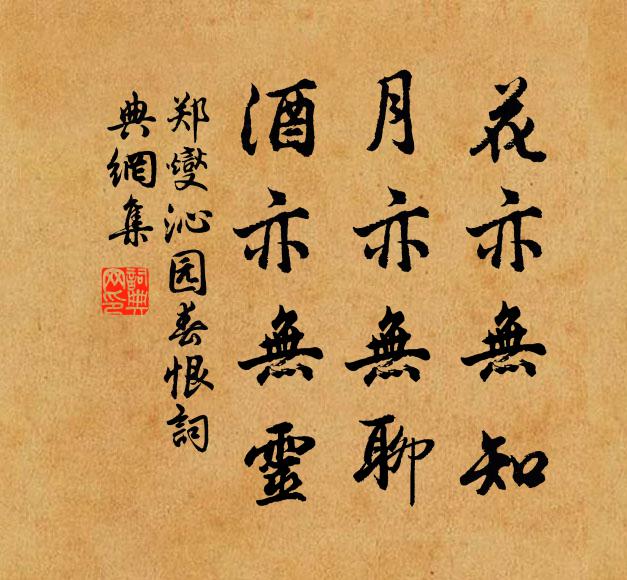 花亦無知
月亦無聊
酒亦無靈
郑燮沁园春恨詞
典網集
詞典
网印